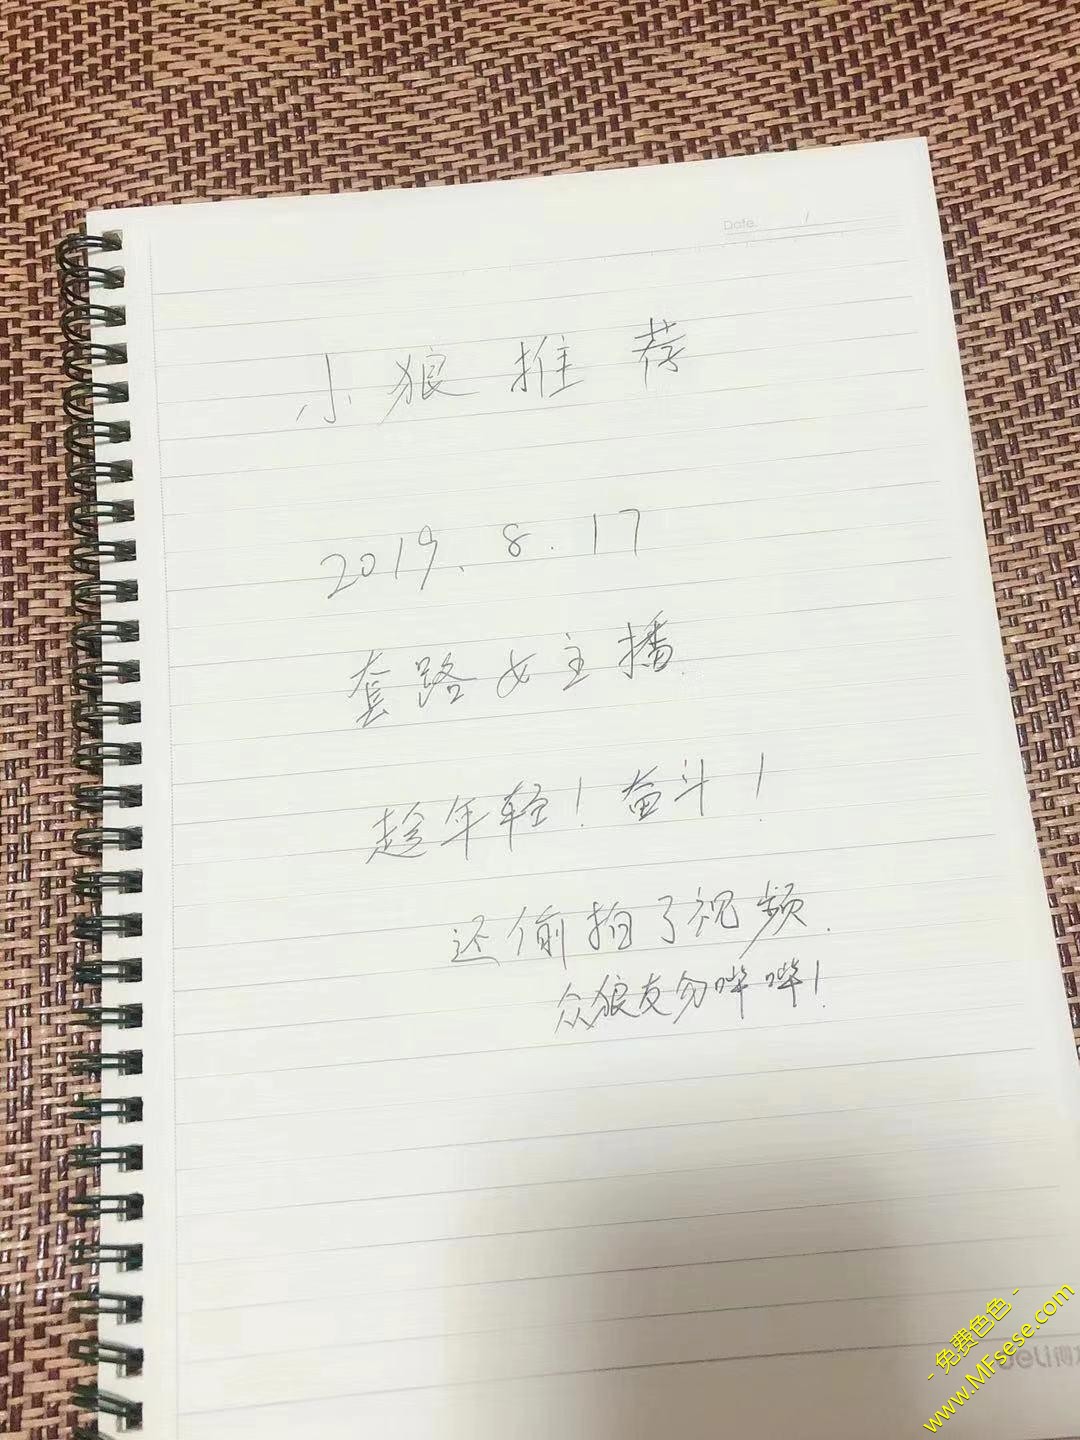 Date. /
小狼推荐
2019.8.17
套路女主播.
趁年轻！奋斗！
还偷拍了视频.
众狼友勿哗哗！
- 免费色色 -
www.MFsese.com
deli得力